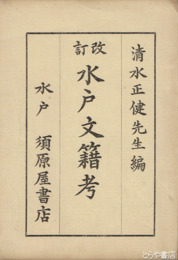 清水正健先生編
改訂
水戸文籍考
水戸 須原屋書店
とらや書店